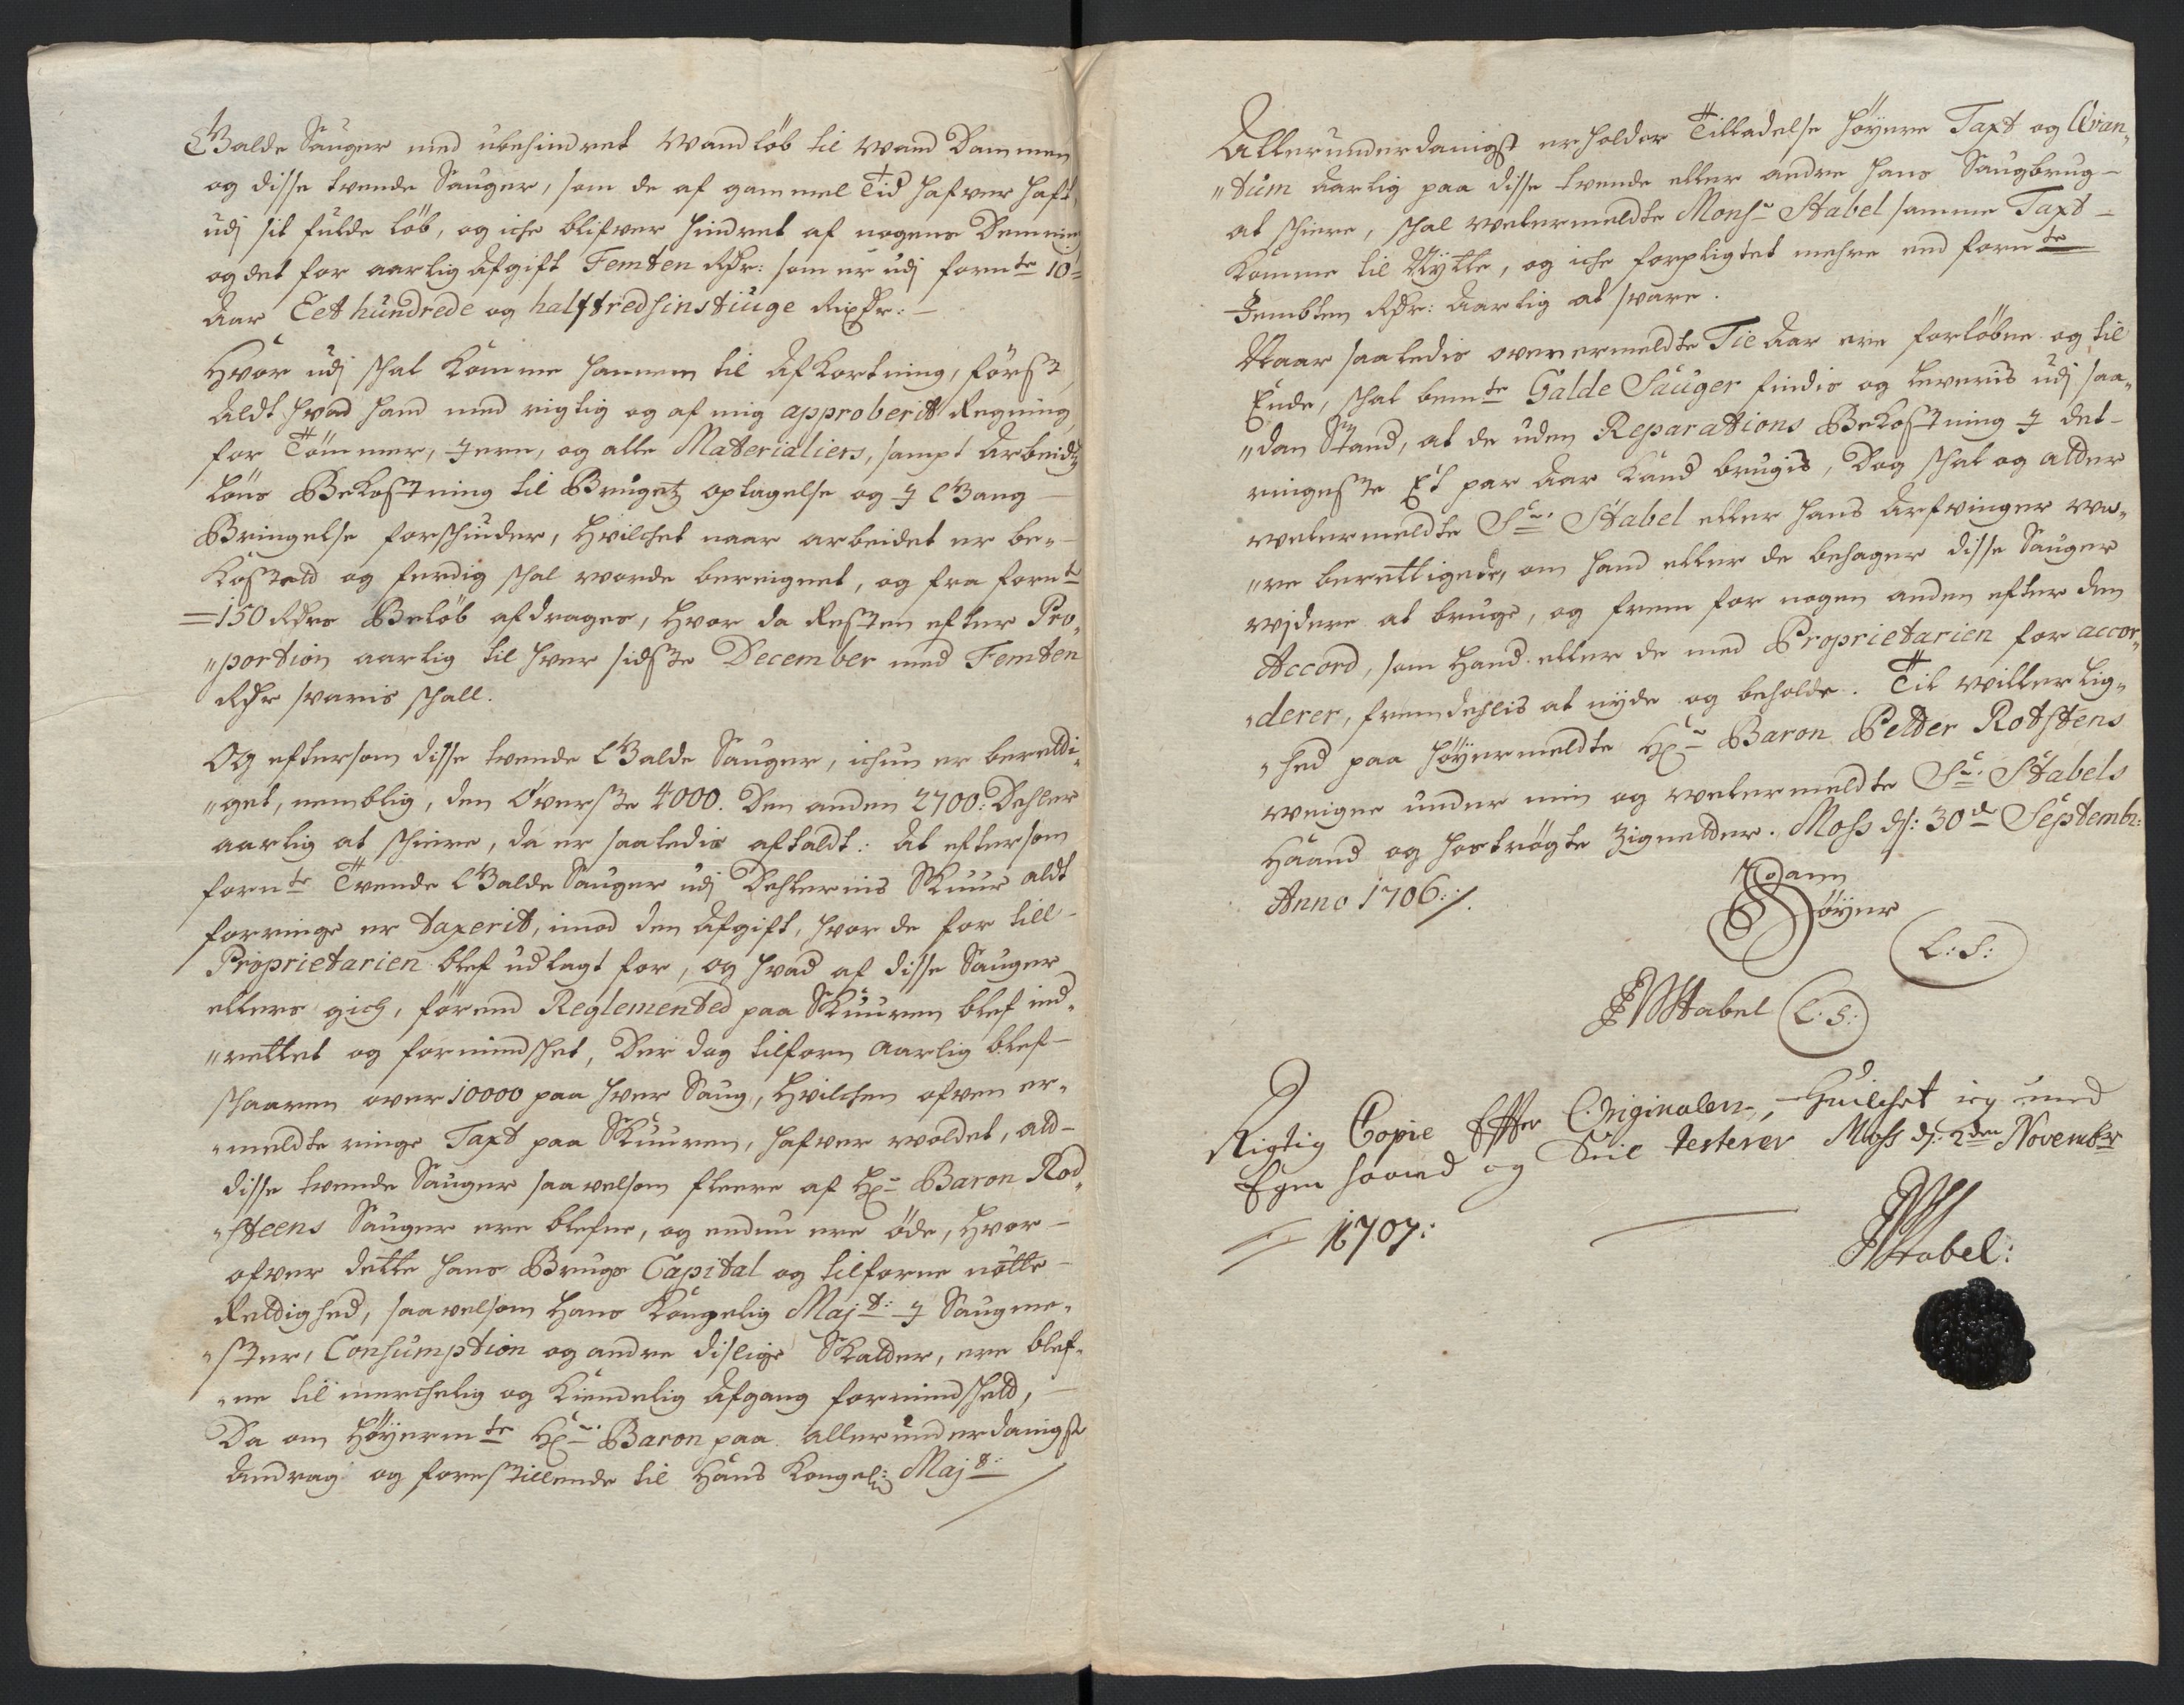 Galde Sauger med ubehindret Wandløb til Wand Dammen
og disse tvende Sauger, som de af gammel Tid hafver haft,
udj sit fulde løb, og iche blifver hindret af nogens Demning
og det for aarlig Afgift Femten Rdr: som er udj fornte 10=
Aar Eet hundrede og halftredsinstiuge Rixdr:
Hvor udj schal komme hannem til Afkortning, først
Aldt hvad hand med rigtig og af mig approberit Regning
for Tömmer, Jern, og alle Materialiers, sampt Arbeids
löns Bekostning til Brugetz optagelse og J Gang
Bringelse forschuder, Hvilchet naar arbeidet er be-
kosted og ferdig schal worde beregnet, og fra fornte
=150 Rdrs Beløb afdrages, Hvor da Resten efter Pro-
"portion aarlig til hver sidste December med Femten
Rdr svaris schall.
Og eftersom disse tvende Galde Sauger, ichun er beretti-
"get, nemblig, den Øverste 4000. Den anden 2700: Dehler
aarlig at schiere, da er saaledis aftaldt: At eftersom
fornte Tvende Galde Sauger udj Dehlernis Skuur aldt
forringe er taxerit, imod den Afgift, hvor de for till
Proprietarien blef udlagt for, og hvad af disse Sauger
ellers gich, førend Reglemented paa Skuuren blef ind-
"rettet og formindschet, Der dog tilforn aarlig blef
schaaren over 10000 paa hver Saug, Hvilchen ofven er-
"meldte ringe Taxt paa Skuuren, hafver voldet, at
disse tvende Sauger saavelsom fleere af Hr Baron Rod-
"steens Sauger ere blefne, og endnu ere øde, Hvor
ofver dette hans Brugs Capital og tilforne nøtte
Rettighed, saavelsom Hans Kongelig Majt: J Saugme-
"ster, Consumption og andre dislige Skatter, ere blef-
"ne til merchelig og kiendelig Afgang formindscheld,
Da om Høyermte Hr Baron paa allerunderdanigst
Andrag og forestillende til Hans Kongel: Majt:
Allerunderdanigst erholder Tilladelse høyere Taxt og Qvan-
"tum Aarlig paa disse tvende eller andre hans Saugbrug
at schiere, schal velermeldte Monsr Stabel samme Taxt
komme til Nytte, og iche forpligtet mehre end fornte
Fembten Rdr: Aarlig at svare.
Naar saaledis ovenermeldte Tie Aar ere forløbne og til
Ende, schal bemte Galde Sauger findis og leveris udj saa-
"dan Stand, at de uden Reparations Bekostning J det
ringeste Et par Aar kand brugis, Dog schal og alder
velermeldte Sr. Stabel eller hans Arfvinger væ-
"re berettigede, om hand eller de behager disse Sauger
videre at bruge, og frem for nogen anden efter den
Accord, som Hand eller de med Proprietarien for accor-
"derer, fremdehlis at nyde og beholde. Til witterlig-
"hed paa Høyermeldte Hr Baron Petter Rotstens
weigne under min og velermeldte Sr. Stabels
Haand og hostrøgte Zignetter. Moss d: 30de Septembr:
Anno 1706 ./.
Søyer
L: S:
Stabel L. S:
Rigtig Copie Effter Originalen, Huilchet ieg med
Egen Haand og Seil testerer Moss d: 2den Novembr
1707:
Stabel: